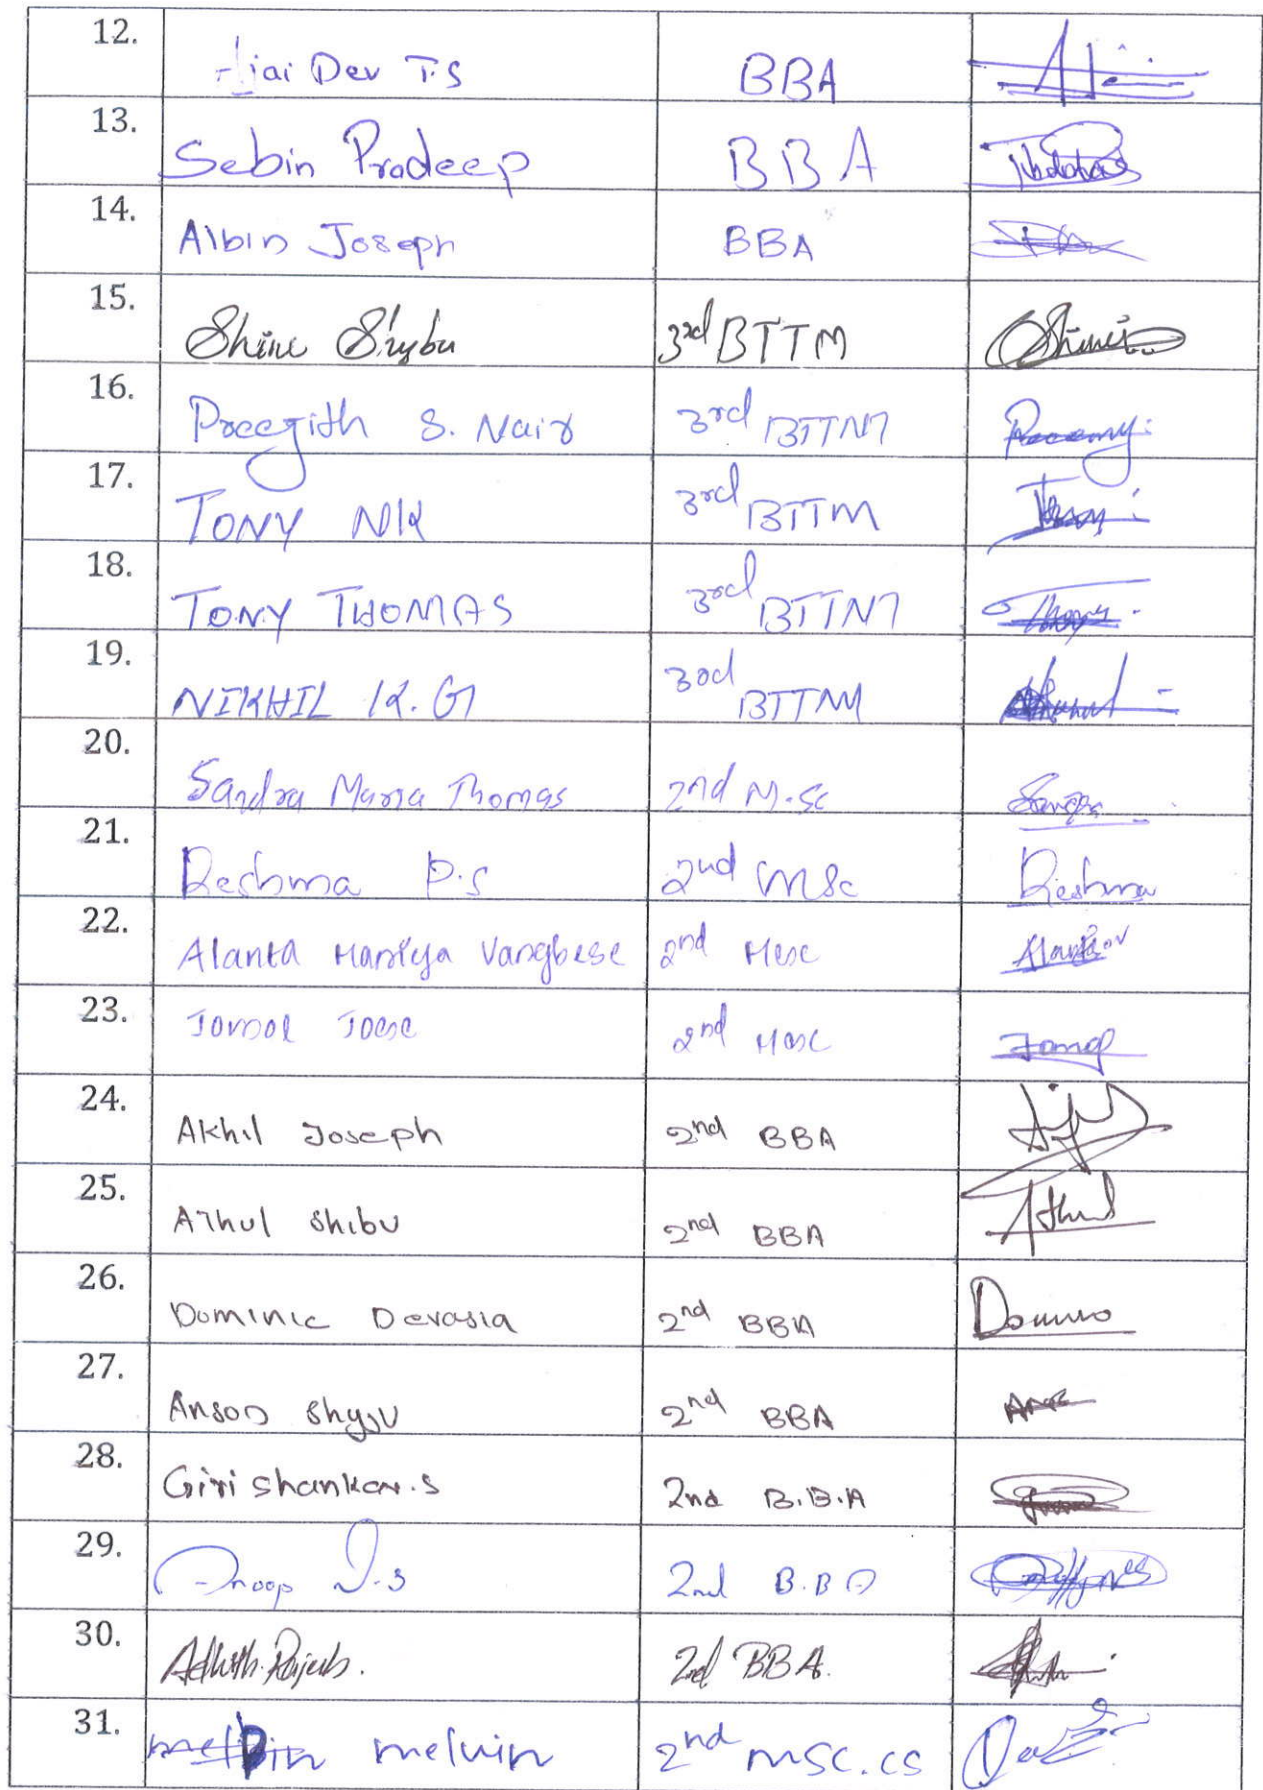 12. Ajai Dev T.S BBA
13. Sebin Pradeep BBA
14. Albin Joseph BBA
15. Shine Shybu 3rd BTTM Shine
16. Preejith S. Nair 3rd BTTM
17. TONY NK 3rd BTTM Tony
18. TONY THOMAS 3rd BTTM
19. NIKHIL K.G 3rd BTTM
20. Sandra Maria Thomas 2nd M.Sc Sandra
21. Reshma P.S 2nd MSc Reshma
22. Alanta Mariya Varghese 2nd Msc
23. Jomol Jose 2nd Msc Jomol
24. Akhil Joseph 2nd BBA
25. Athul Shibu 2nd BBA Athul
26. Dominic Devasia 2nd BBA
27. Anson Shyju 2nd BBA
28. Giri Shankar.S 2nd B.B.A
29. Anoop 2nd B.B.A
30. Adhith Rajeeb. 2nd BBA.
31. melvin 2nd MSC.CS